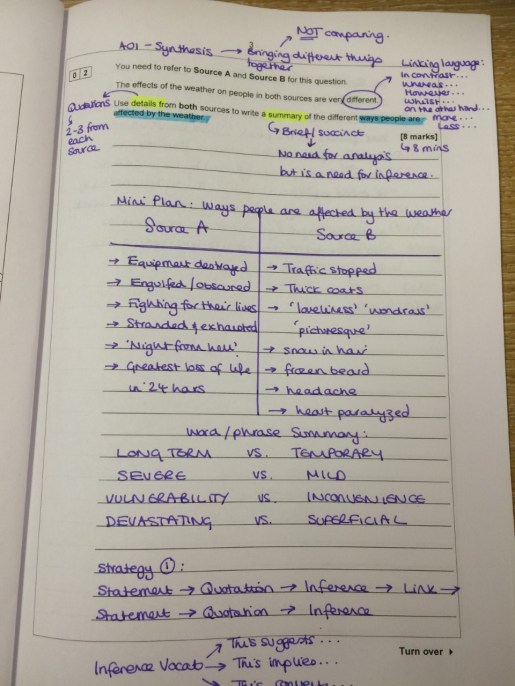 NOT comparing.
AO1 - Synthesis → Bringing different things together
Linking language:
In contrast...
whereas...
However...
Whilst...
on the other hand...
more...
less...
0 2
You need to refer to Source A and Source B for this question.
The effects of the weather on people in both sources are very different
Use details from both sources to write a summary of the different ways people are
affected by the weather.
[8 marks]
↳ 8 mins
Quotations
2-3 from
each
source
↳ Brief/succinct
No need for analysis
but is a need for inference.
Mini Plan: Ways people are affected by the weather
Source A
Source B
→ Equipment destroyed
→ Engulfed/obscured
→ Fighting for their lives
→ Stranded & exhausted
→ 'Night from hell'
→ Greatest loss of life
in 24 hours
→ Traffic stopped
→ Thick coats
→ 'loveliness' 'wondrous'
'picturesque'
→ snow in hair
→ frozen beard
→ headache
→ heart paralyzed
Word/phrase Summary:
LONG TERM vs. TEMPORARY
SEVERE vs. MILD
VULNERABILITY vs. INCONVENIENCE
DEVASTATING vs. SUPERFICIAL
Strategy ①:
Statement → Quotation → Inference → Link →
Statement → Quotation → Inference
Turn over
Inference Vocab → This suggests...
→ This implies...